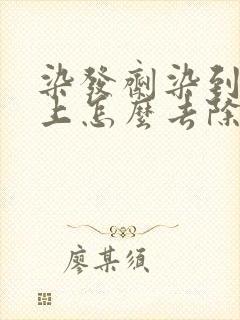 染發劑染到
上怎麼去除
廖某須